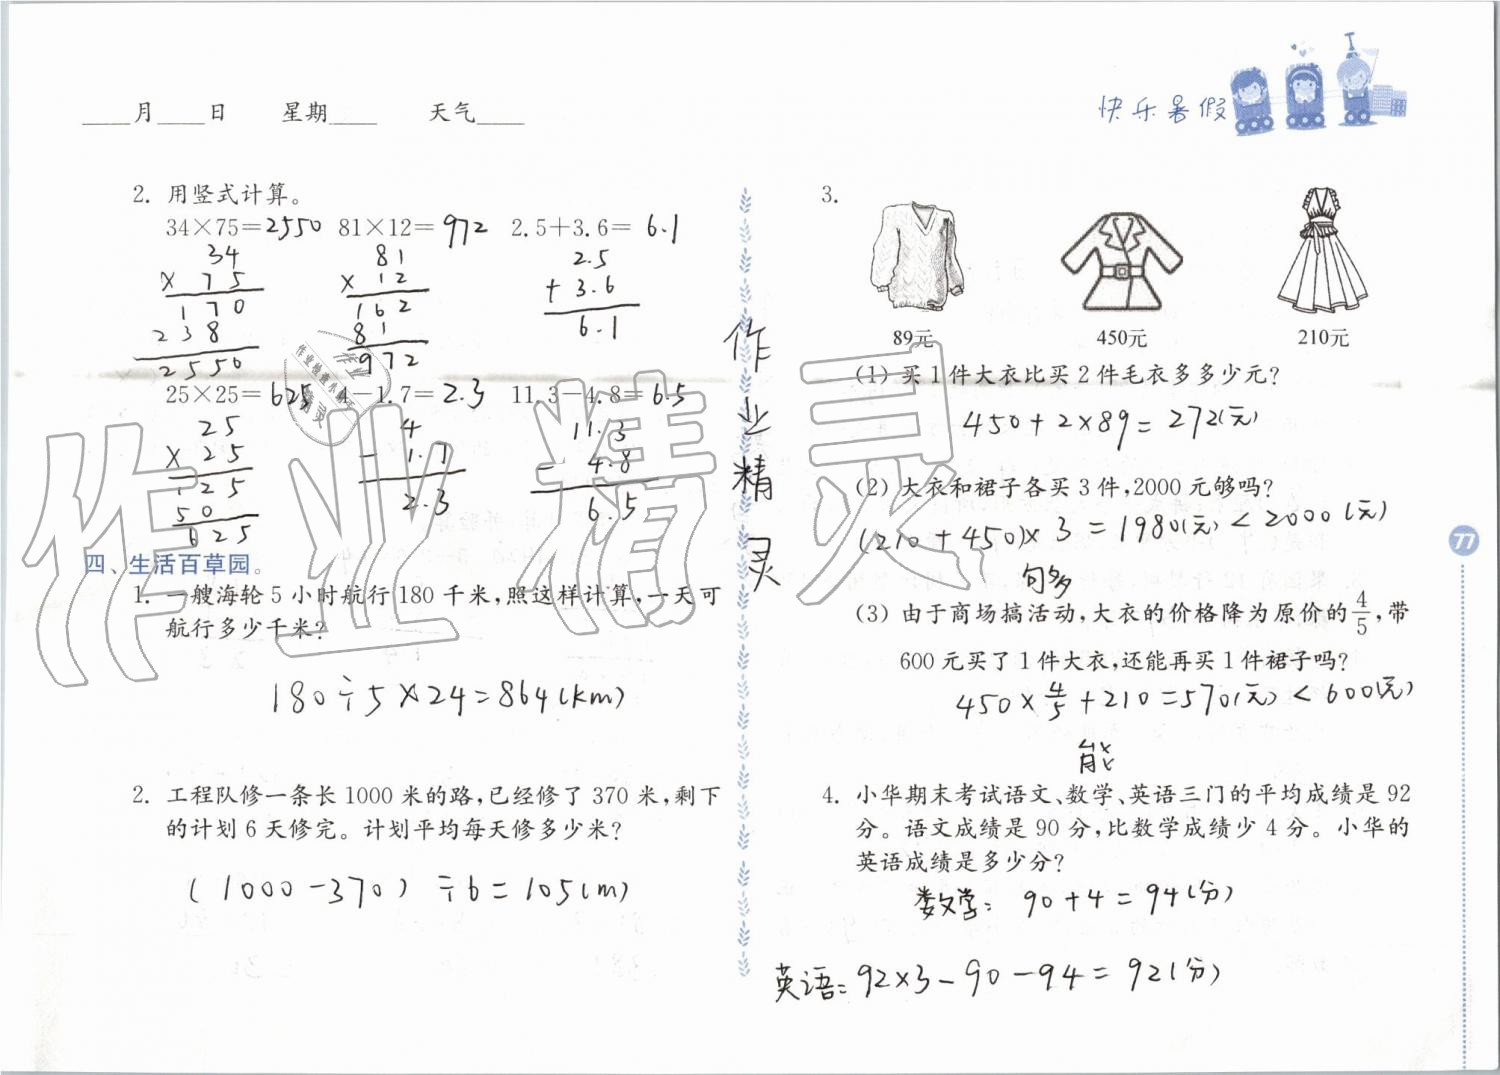 ____月____日 星期____ 天气____
快乐暑假
2. 用竖式计算。
34×75=2550 81×12=972 2.5+3.6=6.1
34 81 2.5
× 75 × 12 + 3.6
170 162 6.1
238 81
2550 972
25×25=625 4-1.7=2.3 11.3-4.8=6.5
25 4 11.3
× 25 - 1.7 - 4.8
125 2.3 6.5
50
625
四、生活百草园。
1. 一艘海轮 5 小时航行 180 千米,照这样计算,一天可
航行多少千米?
180÷5×24=864(km)
2. 工程队修一条长 1000 米的路,已经修了 370 米,剩下
的计划 6 天修完。计划平均每天修多少米?
(1000-370)÷6=105(m)
作业精灵
作业精灵
3.
89元 450元 210元
(1) 买 1 件大衣比买 2 件毛衣多多少元?
450+2×89=272(元)
(2) 大衣和裙子各买 3 件,2000 元够吗?
(210+450)×3=1980(元)<2000(元)
够
(3) 由于商场搞活动,大衣的价格降为原价的4/5,带
600 元买了 1 件大衣,还能再买 1 件裙子吗?
450×4/5+210=570(元)<600(元)
能
4. 小华期末考试语文、数学、英语三门的平均成绩是 92
分。语文成绩是 90 分,比数学成绩少 4 分。小华的
英语成绩是多少分?
数学: 90+4=94(分)
英语: 92×3-90-94=92(分)
77